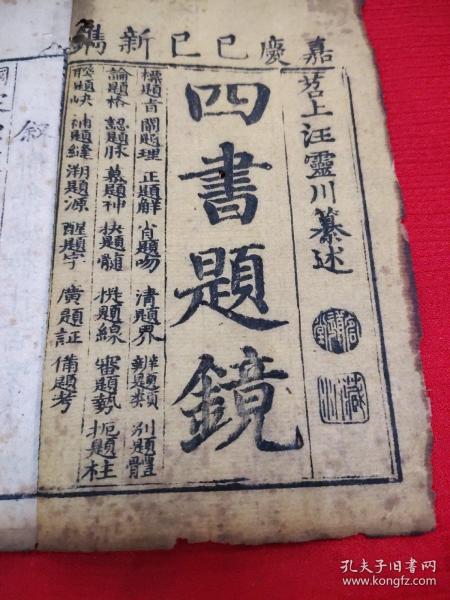 嘉慶己巳新鐫
苕上汪靈川纂述
四書題鏡
標題旨 闡題理 正題解 肖題吻 清題界 辨題類 別題體
論題格 認題脉 摹題神 抉題髓 提題線 審題勢 扼題柱
補題縫 溯題源 醒題字 廣題証 備題考
叙
孔夫子旧书网
www.kongfz.com